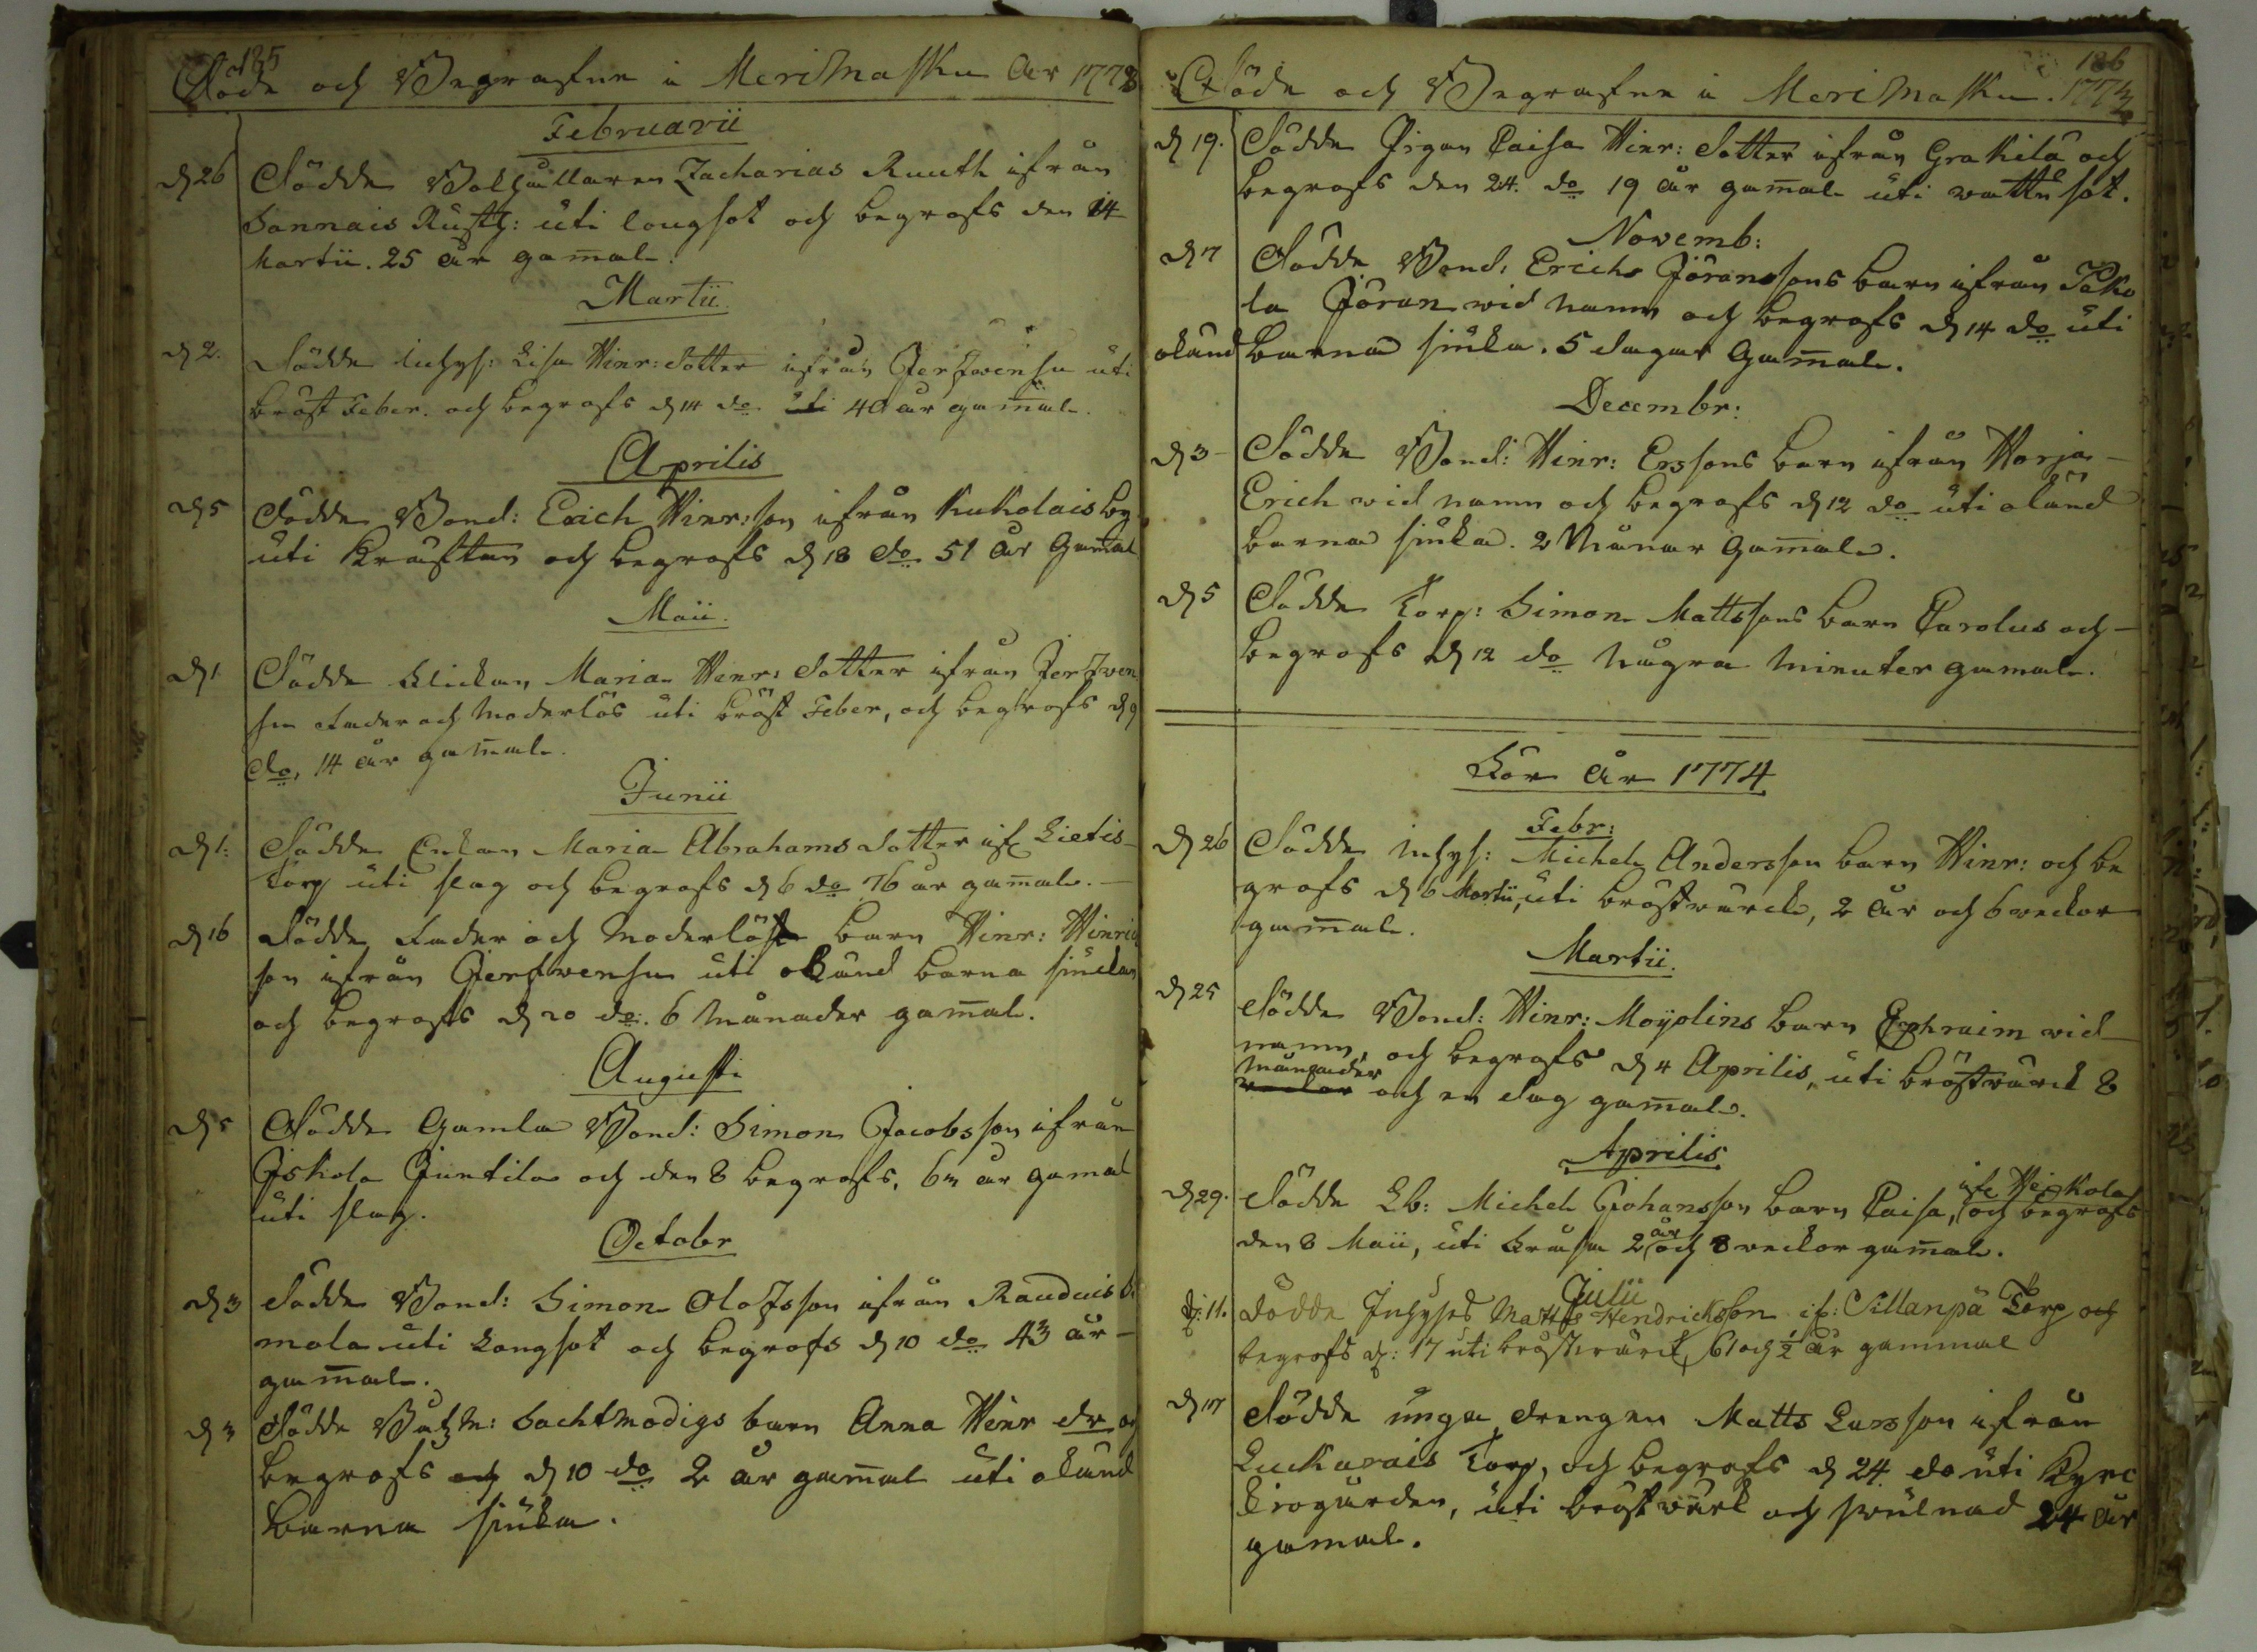 185
Döde och Begrafne i Merimasku År 1773
Februarii
d 26 Dödde Bokhållaren Zacharias Ruuth ifrån
Sannais Rusth: uti lougsot och begrofs den 14
Martii. 25 år gam̄al.
Martii
d 2. Dödde Inhys: Lisa Hinr: dotter ifrån Jerfwensu uti
bröst Feber. och begrofs d 14 do uti 40 år gam̄al.
Aprilis
d 5 Dödde Bond: Erich Hinr: son ifrån Kukolais by
uti Kräftan och begrofs d 18 do 51 År Gam̄al
Maii.
d 1 Dödde flickan Maria Hinr: dotter ifrån Jerfwen
su fader och moderlös uti bröst Feber, och begrofs d 9
do, 14 år gam̄al.
Junii
d 1: Dödde Enkan Maria Abrahams dotter if Lietis
Torp uti slag och begrofs d 6 do 76 år gam̄al.
d 16 Dödde fader och moderlöst barn Hinr: Hinric
son ifrån Jerfwensu uti okänd barna siukan
och begrofs d 20 do. 6 månader gam̄al.
Augusti
d 5 Dödde Gamla Bond: Simon Jacobsson ifrån
Iskola Juntila och den 8 begrofs, 67 år gamal
uti slag.
Octobr
d 3 Dödde Bond: Simon Olofsson ifrån Raudais
mola uti Longsot och begrofs d 10 do 43 år
gam̄al.
d 3 Dödde Båtzm: Sachtmodigs barn Anna Hinr dr och
begrofs och d 10 do 2 år gam̄al uti okänd
barna siuka.
186
Döde och Begrafne i Merimasku. 1773
d 19. Dödde Pigan Caisa Hinr: dotter ifrån Grakila och
begrofs den 24. do 19 år gam̄al uti wattu sot.
Novemb:
d 7 Dödde Bond: Erichs Jöranssons barn ifrån Isko
la Jöran wid namn och begrofs d 14 do uti
okänd barna siuka. 5 dagar Gam̄al.
Decembr:
d 3 Dödde Bond: Hinr: Erssons barn ifrån Horja
Erich wid namn och begrofs d 12 do uti okänd
barna siuka. 2 Månar Gam̄al.
d 5 Dödde Torp: Simon Mattssons barn Carolus och
begrofs d 12 do några minuter gamal.
För År 1774
Febr:
d 26 Dödde inhys: Michel Andersson barn Hinr: och be
grofs d 6 Martii, uti bröstwärck, 2 år och 6 weckor
gam̄al.
Martii.
d 25 Dödde Bond: Hinr: Moijolins barn Ephraim wid
namn, och begrofs d 4 Aprilis, uti bröstwärck 8
månader
weckor och en dag gam̄al.
Aprilis
d 29. Dödde Lb: Michel Johansson barn Caisa, if: Heikola och begrofs
den 8 Maii, uti Fråsa 2 år och 8 weckor gam̄al.
Julii
d: 11. Dödde Inhyses Matths Hendricksson if: Sillanpä Torp och
begrofs d: 17 uti bröstwärck, 61 och ½ år gammal
d 17 Dödde unga drengen Matts Larsson ifrån
Luckarais Torp, och begrofs d 24 do uti Kyrc
kiogården, uti bröstwärk och swulnad 24 år
gamal.